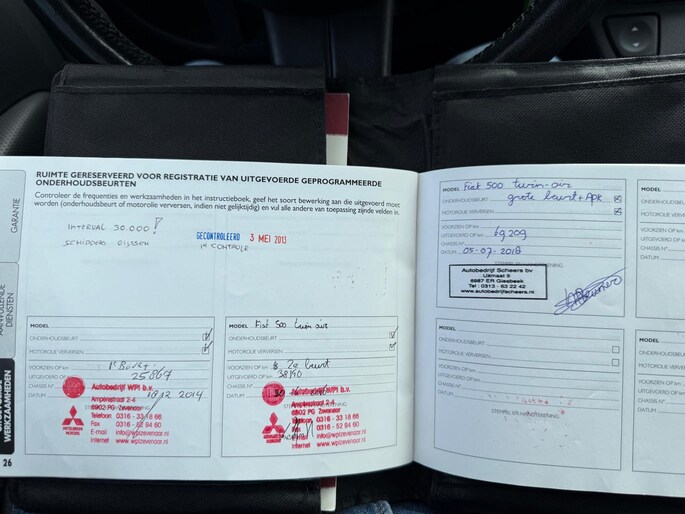 RUIMTE GERESERVEERD VOOR REGISTRATIE VAN UITGEVOERDE GEPROGRAMMEERDE
ONDERHOUDSBEURTEN
Controleer de frequenties en werkzaamheden in het instructieboek, geef het soort bewerking aan die uitgevoerd moet
worden (onderhoudsbeurt of motorolie verversen, indien niet gelijktijdig) en vul alle andere van toepassing zijnde velden in.
INTERVAL 30.000!
GECONTROLEERD 3 MEI 2013
1e CONTROLE
GARANTIE
AANVULLENDE
DIENSTEN
WERKZAAMHEDEN
26
MODEL
ONDERHOUDSBEURT
MOTOROLIE VERVERSEN
1e Beurt
VOORZIEN OP km
UITGEVOERD OP km 25867
CHASSIS N°
DATUM 18 12 2014
Autobedrijf WPI b.v.
Ampèrestraat 2-4
6902 PG Zevenaar
Telefoon 0316 - 33 18 66
Fax 0316 - 52 94 60
E-mail info@wpizevenaar.nl
Internet www.wpizevenaar.nl
MITSUBISHI
MOTORS
MODEL Fiat 500 twin air
ONDERHOUDSBEURT
MOTOROLIE VERVERSEN
VOORZIEN OP km 2e beurt
UITGEVOERD OP km 38190
CHASSIS N°
DATUM
Autobedrijf WPI b.v.
Ampèrestraat 2-4
6902 PG Zevenaar
Telefoon 0316 - 33 18 66
Fax 0316 - 52 94 60
E-mail info@wpizevenaar.nl
Internet www.wpizevenaar.nl
MITSUBISHI
MOTORS
MODEL Fiat 500 twin-air
ONDERHOUDSBEURT grote beurt + Apk
MOTOROLIE VERVERSEN
VOORZIEN OP km
UITGEVOERD OP km 69209
CHASSIS N°
DATUM 05-07-2018
Autobedrijf Scheers bv
6987 ER Giesbeek
Tel : 0313 - 63 22 42
www.autobedrijfscheers.nl
MODEL
ONDERHOUDSBEURT
MOTOROLIE VERVERSEN
VOORZIEN OP km
UITGEVOERD OP km
CHASSIS N°
DATUM
MODEL
ONDERHOUDSBEURT
MOTOROLIE VERVERSEN
VOORZIEN OP km
UITGEVOERD OP km
CHASSIS N°
DATUM
MODEL